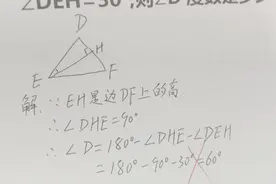 ∠DEH=30°,则∠D 度数是多少
D
H
E
F
解: ∵ EH是边DF上的高
∴ ∠DHE=90°
∴ ∠D=180°-∠DHE-∠DEH
=180°-90°-30°=60°